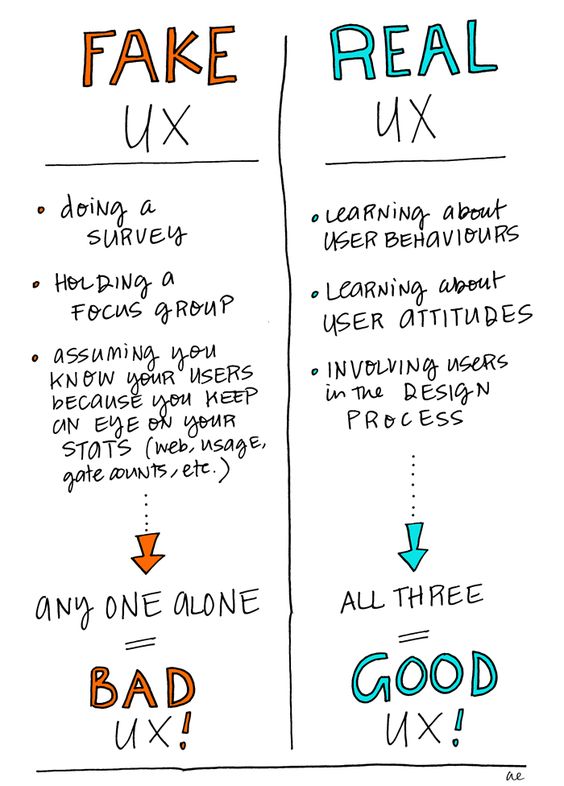 FAKE
UX
• doing a
SURVEY
• HOLDING A
FOCUS GROUP
• assuming you
KNOW your USERS
because you KEEP
an EYE on your
STATS (web, usage,
gate counts, etc.)
any ONE ALONE
=
BAD
UX!
REAL
UX
• Learning about
USER BEHAVIOURS
• Learning about
USER ATTITUDES
• INVOLVING users
in the DESIGN
PROCESS
ALL THREE
=
GOOD
UX!
ae